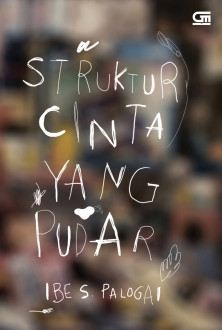 GM
STRUKTUR
CINTA
YANG
PUDAR
IBE S PALOGAI